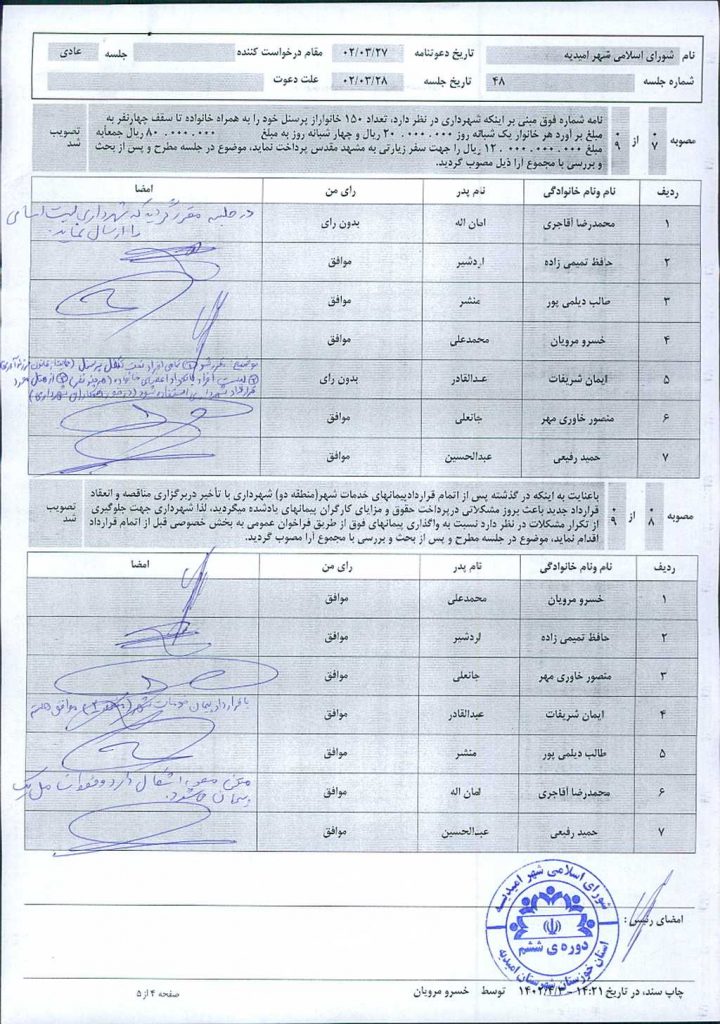 نام شورای اسلامی شهر امیدیه تاریخ دعوتنامه ۰۲/۰۳/۲۷ مقام درخواست کننده جلسه عادی
شماره جلسه ۴۸ تاریخ جلسه ۰۲/۰۳/۲۸ علت دعوت
مصوبه ۰۷ از ۰۹
نامه شماره فوق مبنی بر اینکه شهرداری در نظر دارد، تعداد ۱۵۰ خانواراز پرسنل خود را به همراه خانواده تا سقف چهارنفر به
مبلغ بر آورد هر خانوار یک شبانه روز ۲۰.۰۰۰.۰۰۰ ریال و چهار شبانه روز به مبلغ ۸۰.۰۰۰.۰۰۰ ریال جمعابه
مبلغ ۱۲.۰۰۰.۰۰۰.۰۰۰ ریال را جهت سفر زیارتی به مشهد مقدس پرداخت نماید، موضوع در جلسه مطرح و پس از بحث
و بررسی با مجموع آرا ذیل مصوب گردید.
تصویب شد
ردیف نام ونام خانوادگی نام پدر رای من امضا
۱ محمدرضا آقاجری امان اله بدون رای
در جلسه مقرر گردید که شهرداری لیست اسامی
را ارسال نماید.
۲ حافظ تمیمی زاده اردشیر موافق
۳ طالب دیلمی پور منشر موافق
۴ خسرو مرویان محمدعلی موافق
۵ ایمان شریفات عبدالقادر بدون رای
۶ منصور خاوری مهر جانعلی موافق
۷ حمید رفیعی عبدالحسین موافق
مصوبه ۰۸ از ۰۹
باعنایت به اینکه در گذشته پس از اتمام قراردادپیمانهای خدمات شهر(منطقه دو) شهرداری با تأخیر دربرگزاری مناقصه و انعقاد
قرارداد جدید باعث بروز مشکلاتی درپرداخت حقوق و مزایای کارگران پیمانهای یادشده میگردید، لذا شهرداری جهت جلوگیری
از تکرار مشکلات در نظر دارد نسبت به واگذاری پیمانهای فوق از طریق فراخوان عمومی به بخش خصوصی قبل از اتمام قرارداد
اقدام نماید، موضوع در جلسه مطرح و پس از بحث و بررسی با مجموع آرا مصوب گردید.
تصویب شد
ردیف نام ونام خانوادگی نام پدر رای من امضا
۱ خسرو مرویان محمدعلی موافق
۲ حافظ تمیمی زاده اردشیر موافق
۳ منصور خاوری مهر جانعلی موافق
۴ ایمان شریفات عبدالقادر موافق
۵ طالب دیلمی پور منشر موافق
۶ محمدرضا آقاجری امان اله موافق
۷ حمید رفیعی عبدالحسین موافق
امضای رئیس:
شورای اسلامی شهر امیدیه
دوره ی ششم
استان خوزستان شهرستان امیدیه
چاپ سند، در تاریخ ۱۴:۲۱ - ۱۴۰۲/۴/۳ توسط خسرو مرویان صفحه ۴ از ۵